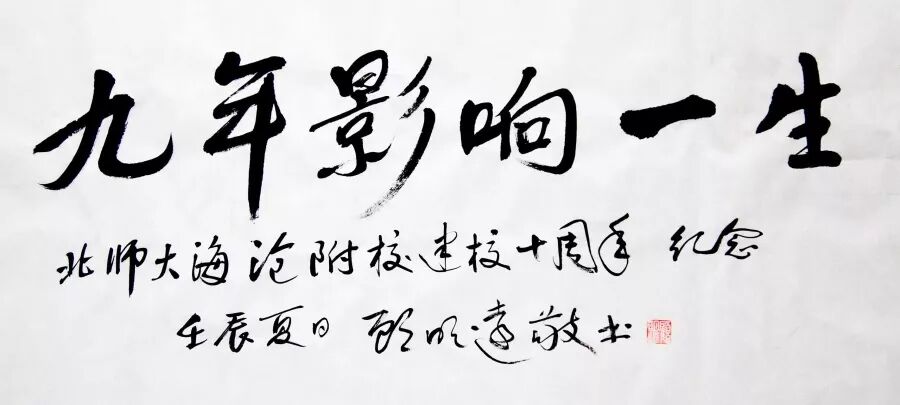 九年影响一生
北师大海沧附校建校十周年 纪念
壬辰夏日 顾明远敬书